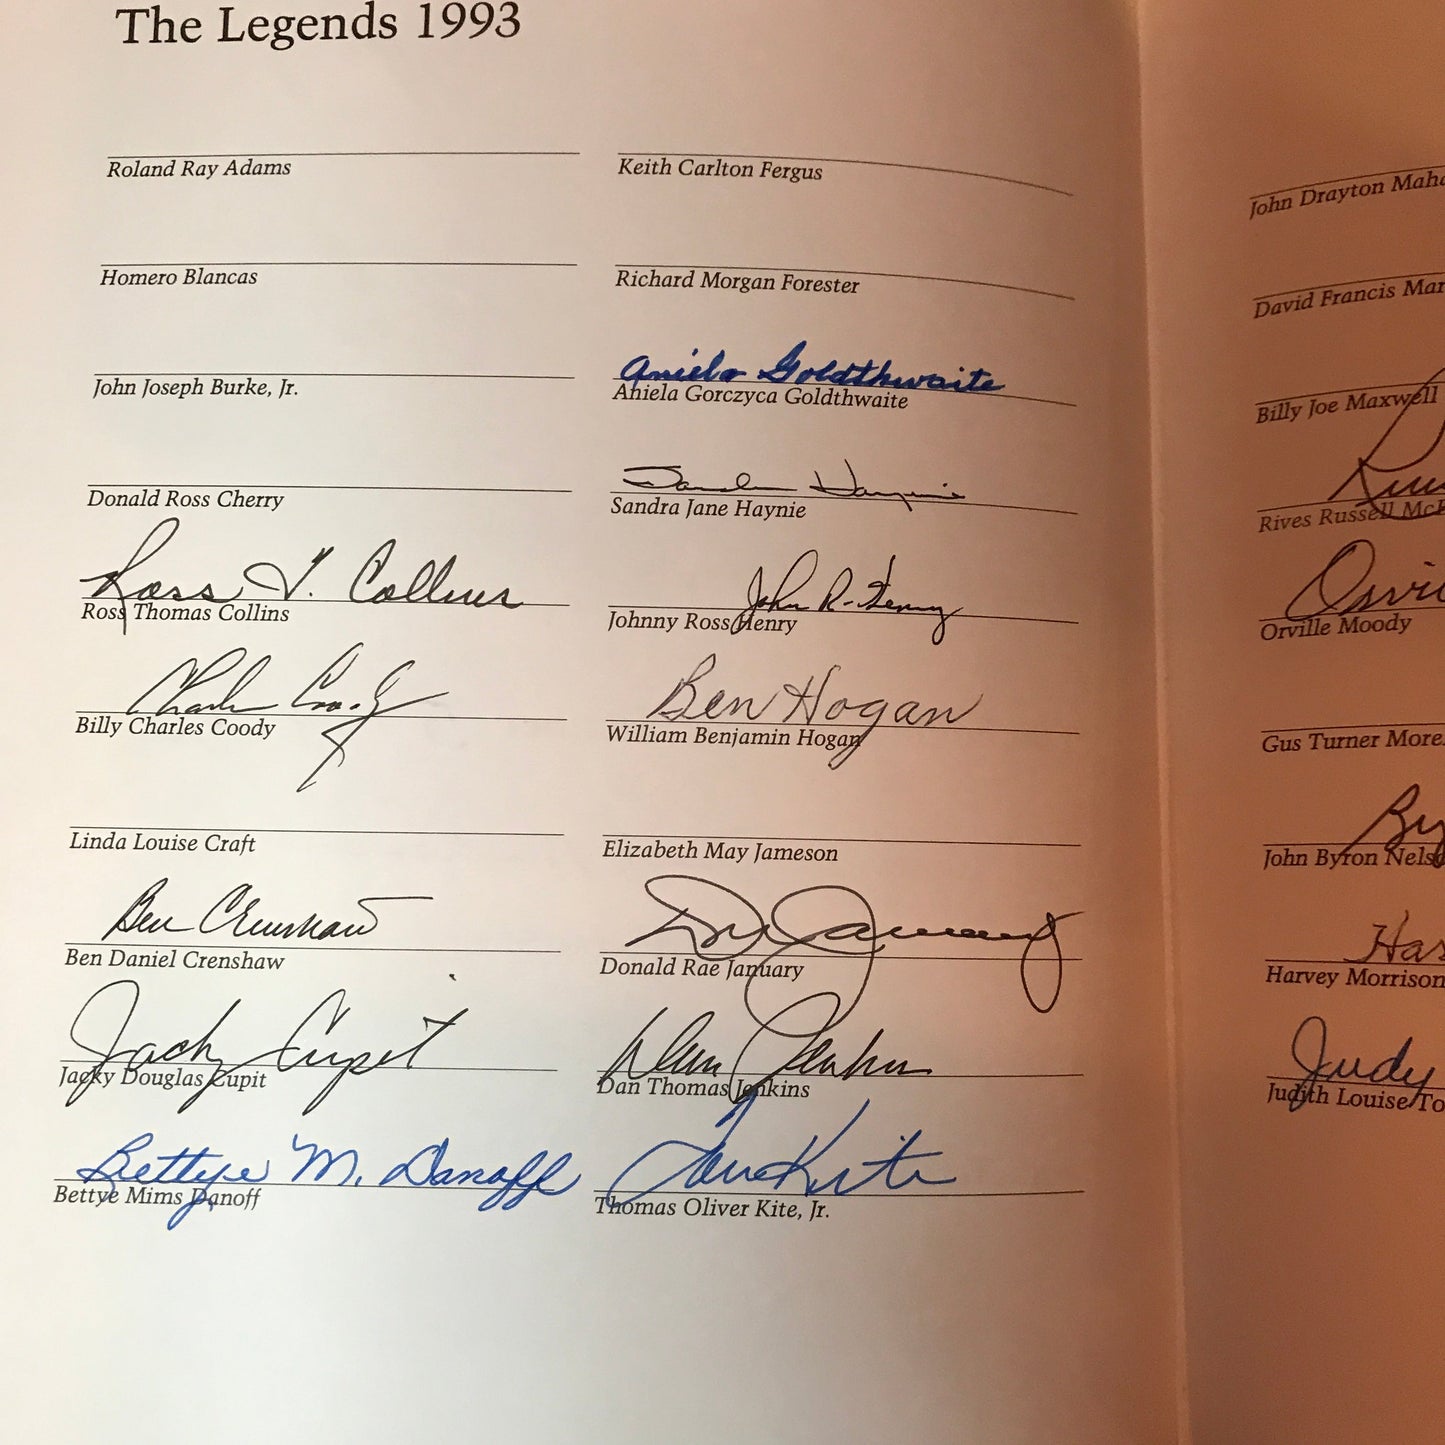 The Legends 1993
Roland Ray Adams
Homero Blancas
John Joseph Burke, Jr.
Donald Ross Cherry
Ross T. Collins
Ross Thomas Collins
Charles Coody
Billy Charles Coody
Linda Louise Craft
Ben Crenshaw
Ben Daniel Crenshaw
Jacky Cupit
Jacky Douglas Cupit
Bettye M. Danoff
Bettye Mims Danoff
Keith Carlton Fergus
Richard Morgan Forester
Aniela Goldthwaite
Aniela Gorczyca Goldthwaite
Sandra Haynie
Sandra Jane Haynie
John R. Henry
Johnny Ross Henry
Ben Hogan
William Benjamin Hogan
Elizabeth May Jameson
Don January
Donald Rae January
Dan Jenkins
Dan Thomas Jenkins
Tom Kite
Thomas Oliver Kite, Jr.
John Drayton Maha
David Francis Mar
Billy Joe Maxwell
Rives Russell McB
Orvi
Orville Moody
Gus Turner More
By
John Byron Nels
Har
Harvey Morrison
Judy
Judith Louise To